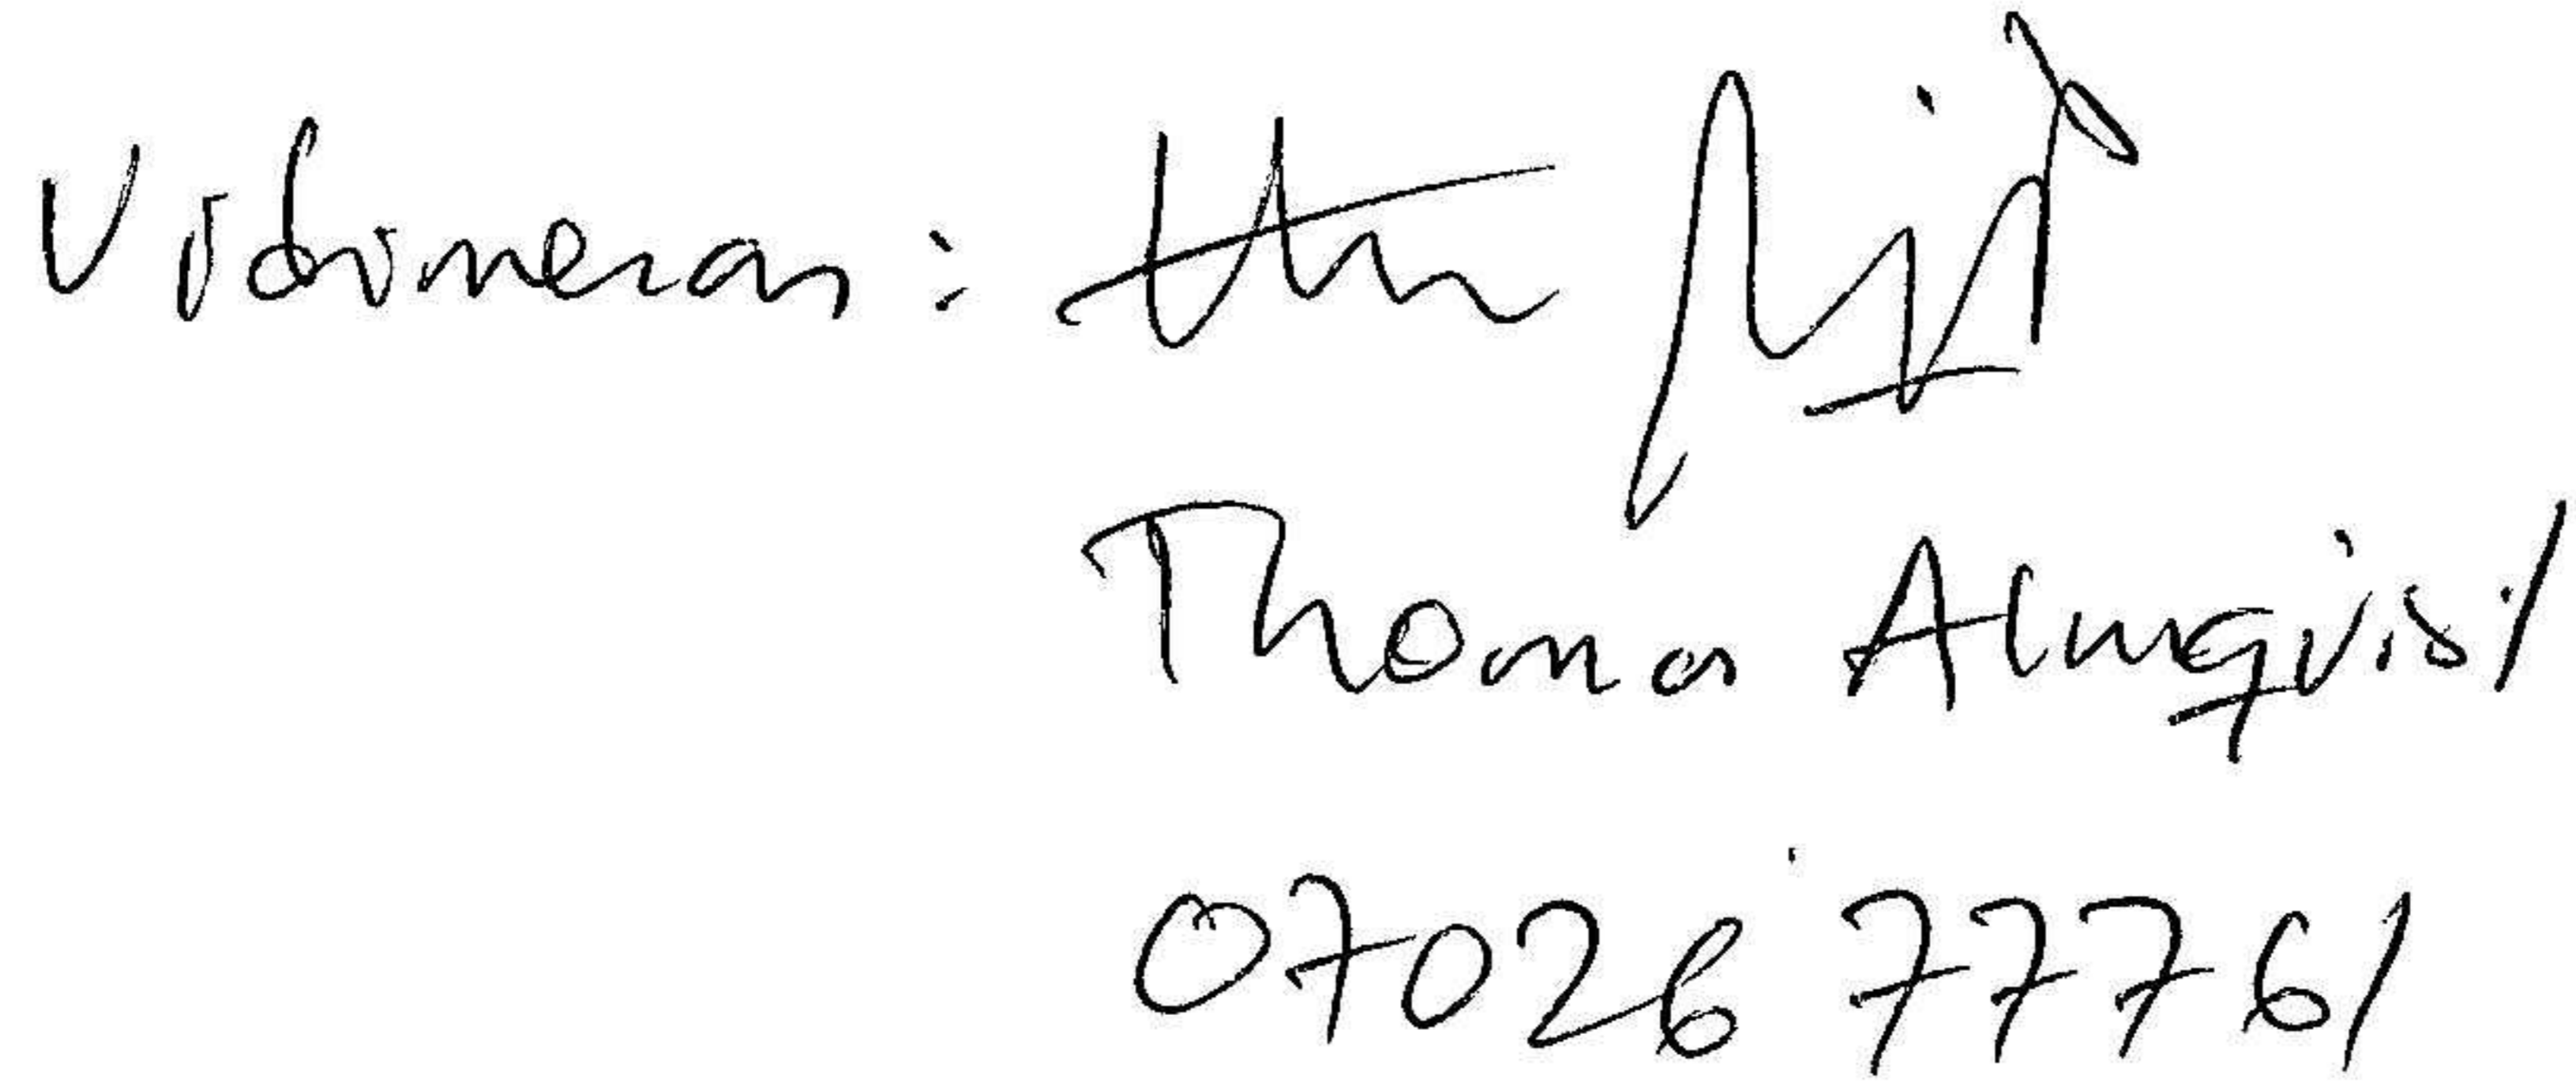 Vidimeras:
Thomas Almqvist
07026 77761